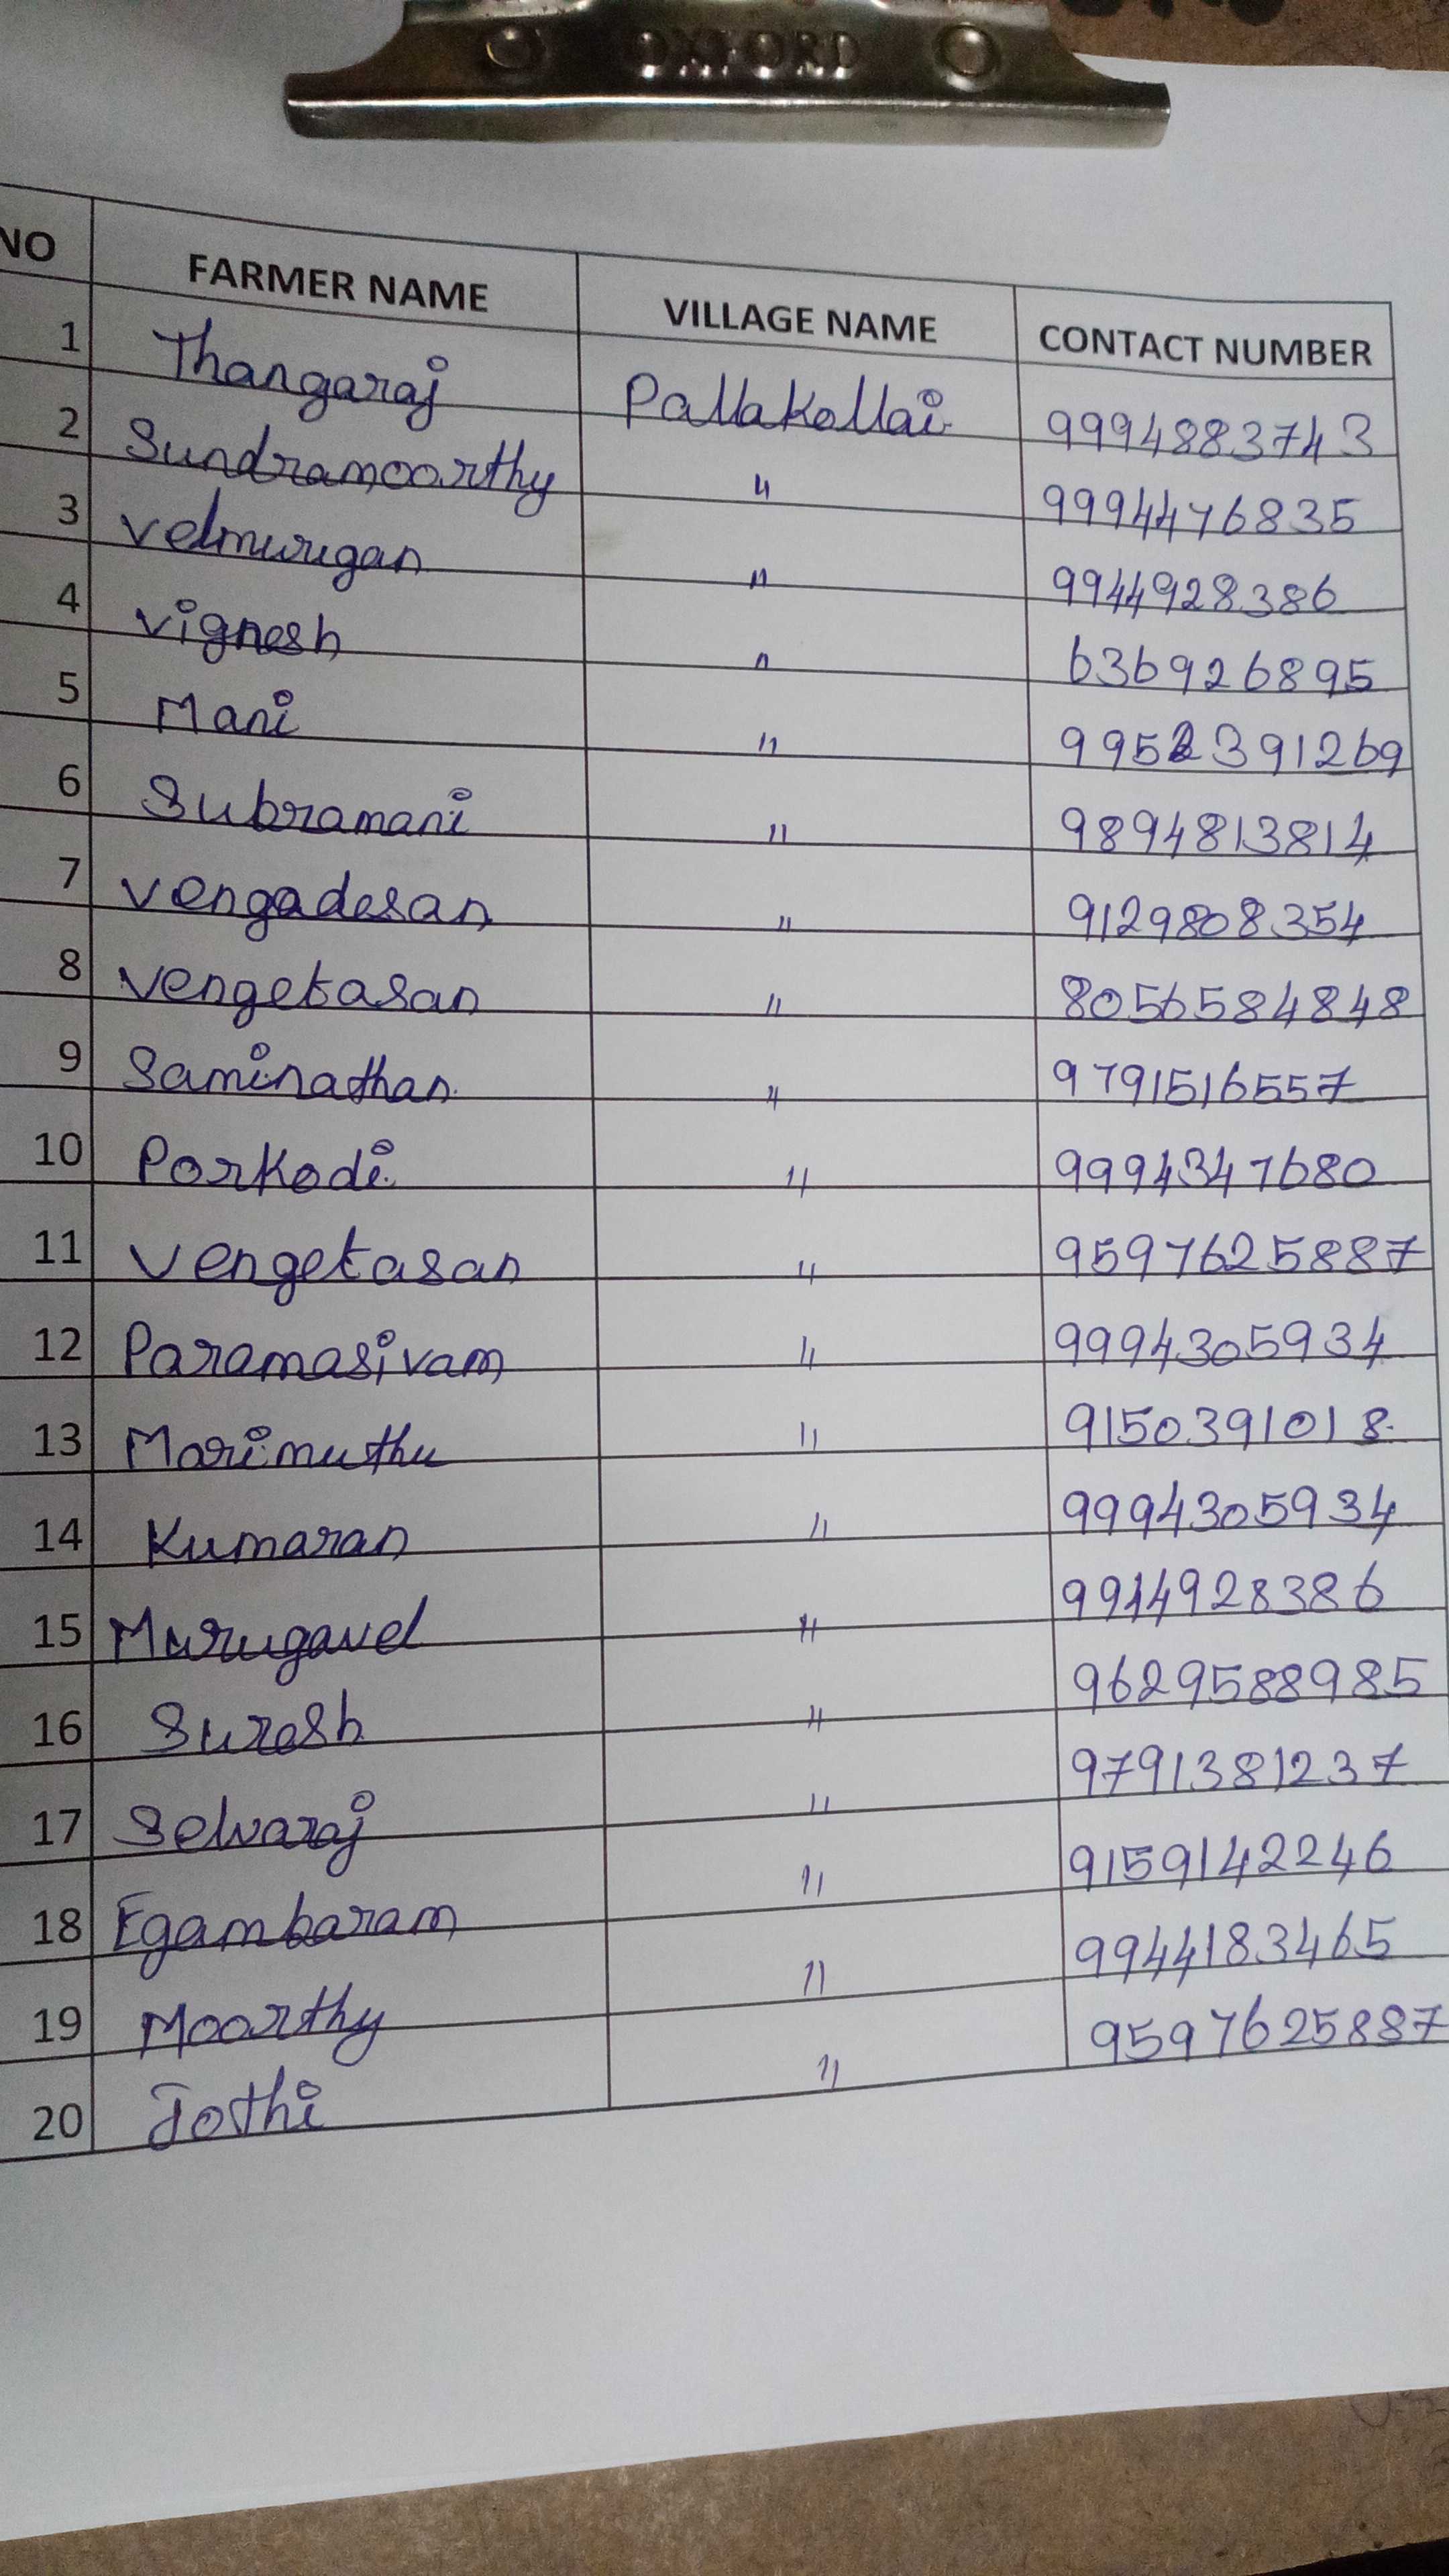 OXFORD
NO FARMER NAME VILLAGE NAME CONTACT NUMBER
1 Thangaraj Pallakollai 9994883743
2 Sundramoorthy " 9994476835
3 Velmurugan " 9944928386
4 Vignesh " 636926895
5 Mani " 9952391269
6 Subramani " 9894813814
7 Vengadesan " 9129808354
8 Vengetasan " 8056584848
9 Saminathan " 9791516557
10 Porkodi " 9994347680
11 Vengetasan " 9597625887
12 Paramasivam " 9994305934
13 Marimuthu " 9150391018
14 Kumaran " 9994305934
15 Murugavel " 9944928386
16 Suresh " 9629588985
17 Selvaraj " 9791381237
18 Egambaram " 9159142246
19 Moorthy " 9944183465
20 Jothi " 9597625887